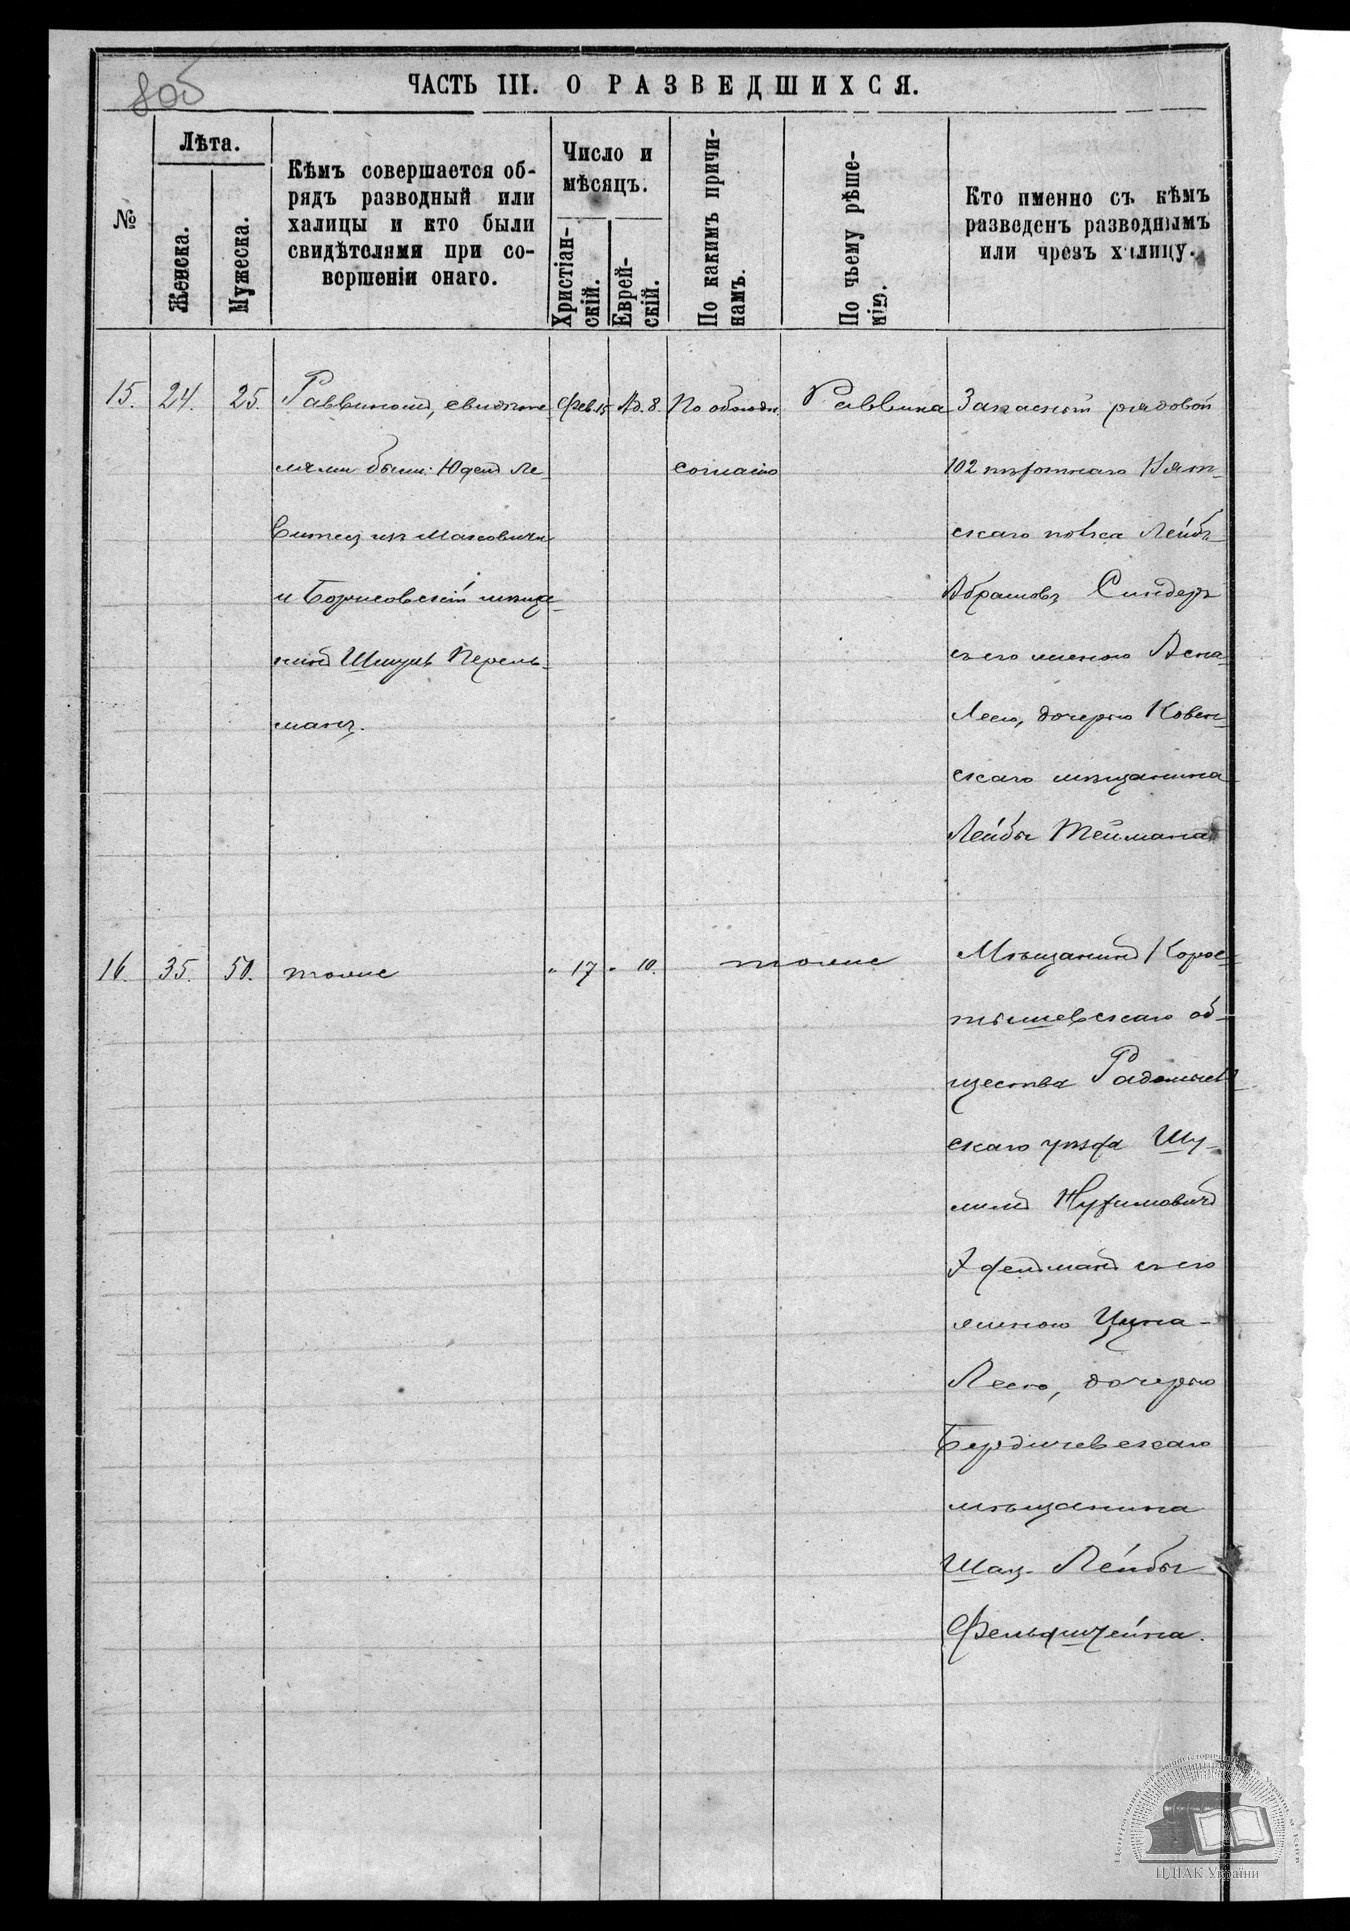 805
ЧАСТЬ III. О РАЗВЕДШИХСЯ.
№
Лѣта.
Женска.
Мужеска.
Кѣмъ совершается об-
рядъ разводный или
халицы и кто были
свидѣтелями при со-
вершеніи онаго.
Число и
мѣсяцъ.
Христіан-
скій.
Еврей-
скій.
По какимъ причи-
намъ.
По чьему рѣше-
нію.
Кто именно съ кѣмъ
разведенъ разводнымъ
или чрезъ халицу.
15. 24. 25. Раввиномъ, свидѣте-
лями были: Юдель Ле-
и Борисовскій мѣща-
нинъ Шмуль Перель-
манъ.
Фев. 15 Ад. 8. По обоюдн.
согласію
Раввина
Запасный рядовой
102 пѣхотнаго Вят-
скаго полка Лейбъ
Абрамовъ Синдеръ
съ его женою
Леею, дочерью Ковен-
скаго мѣщанина
Лейбы Теймана
16. 35. 50. тоже " 17 " 10. тоже
Мѣщанинъ Корос-
тышевскаго об-
щества Радомысль-
скаго уѣзда Шу-
лимъ Нухимовичъ
съ его
женою
Леею, дочерью
Бердичевскаго
мѣщанина
Лейбы
Фельдштейна.
ЦДІАК України